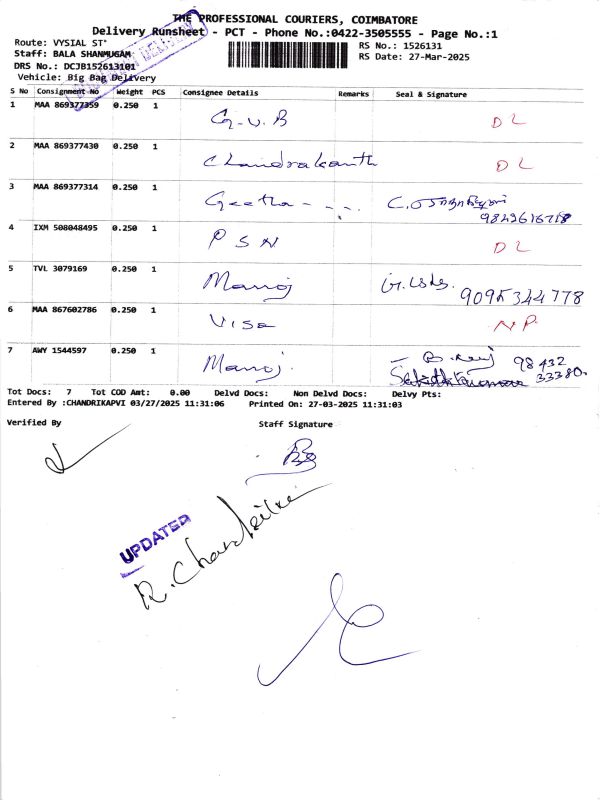 THE PROFESSIONAL COURIERS, COIMBATORE
Delivery Runsheet - PCT - Phone No.:0422-3505555 - Page No.:1
Route: VYSIAL ST
RS No.: 1526131
Staff: BALA SHANMUGAM
RS Date: 27-Mar-2025
DRS No.: DCJB152613101
Vehicle: Big Bag Delivery
S No Consignment No Weight PCS Consignee Details Remarks Seal & Signature
1 MAA 869377359 0.250 1 G.V.B DL
2 MAA 869377430 0.250 1 Chandrakanth DL
3 MAA 869377314 0.250 1 Geetha
9849616718
4 IXM 508048495 0.250 1 PSN DL
5 TVL 3079169 0.250 1 Manoj
9095344778
6 MAA 867602786 0.250 1 Visa NP.
7 AWY 1544597 0.250 1 Manoj. 98432
33380.
Tot Docs: 7 Tot COD Amt: 0.00 Delvd Docs: Non Delvd Docs: Delvy Pts:
Entered By :CHANDRIKAPVI 03/27/2025 11:31:06 Printed On: 27-03-2025 11:31:03
Verified By Staff Signature
UPDATED